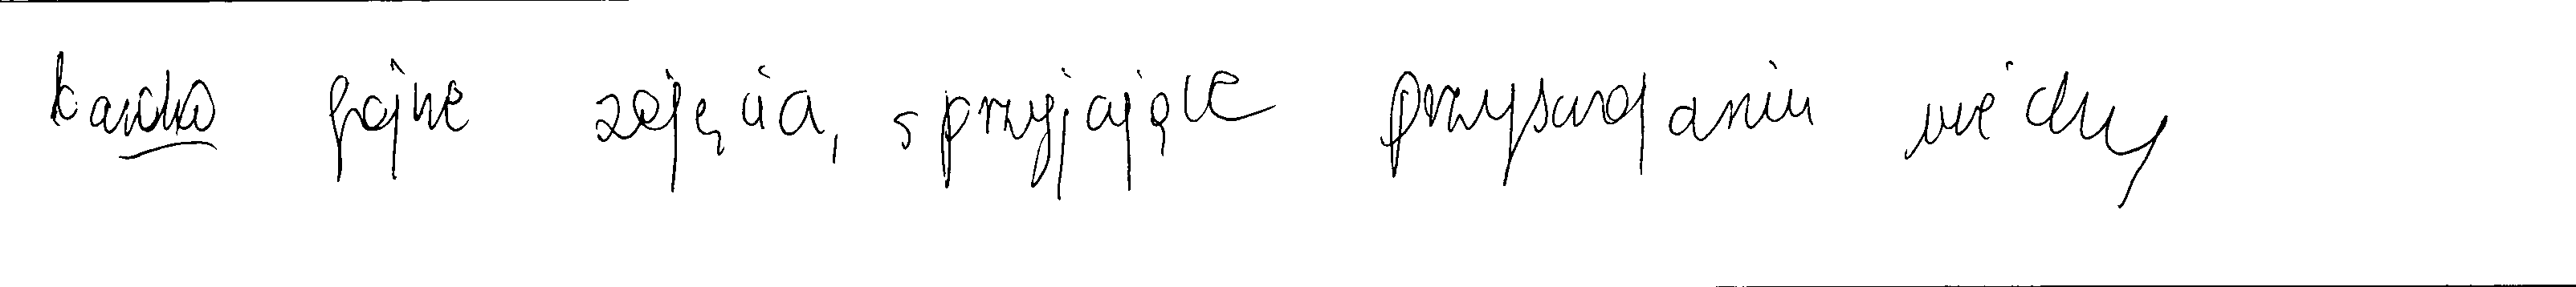 bardzo fajne zajęcia, sprzyjające przyswajaniu wiedzy